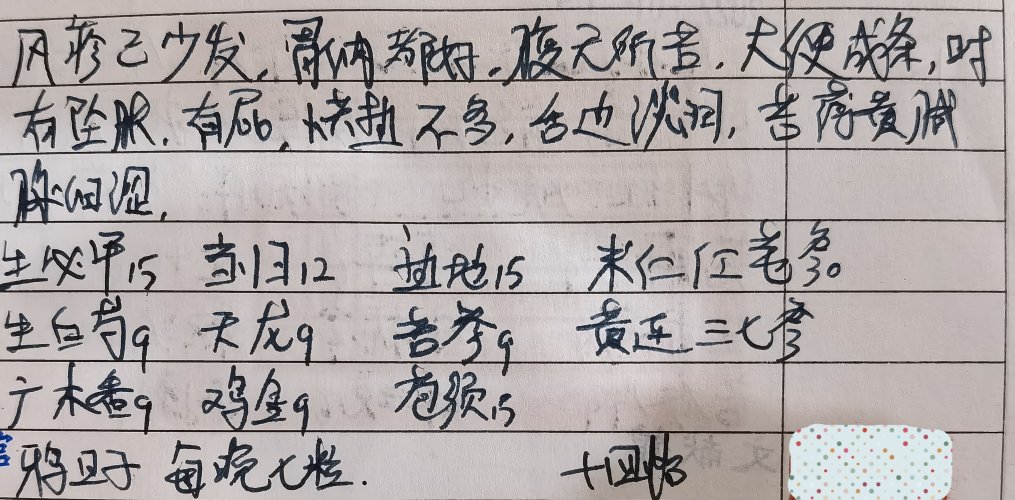 风疹已少发，胃纳都好，腹无所苦，大便成条，时
有坠胀，有屁，烘热不多，舌边淡润，苔薄黄腻
脉细涩，
生必甲15 当归12 熟地15 米仁 仁 各30
生白芍9 天龙9 苦参9 黄连 三七 各3
广木香9 鸡金9 苞须15
鸦旦子 每晚七粒. 十四帖